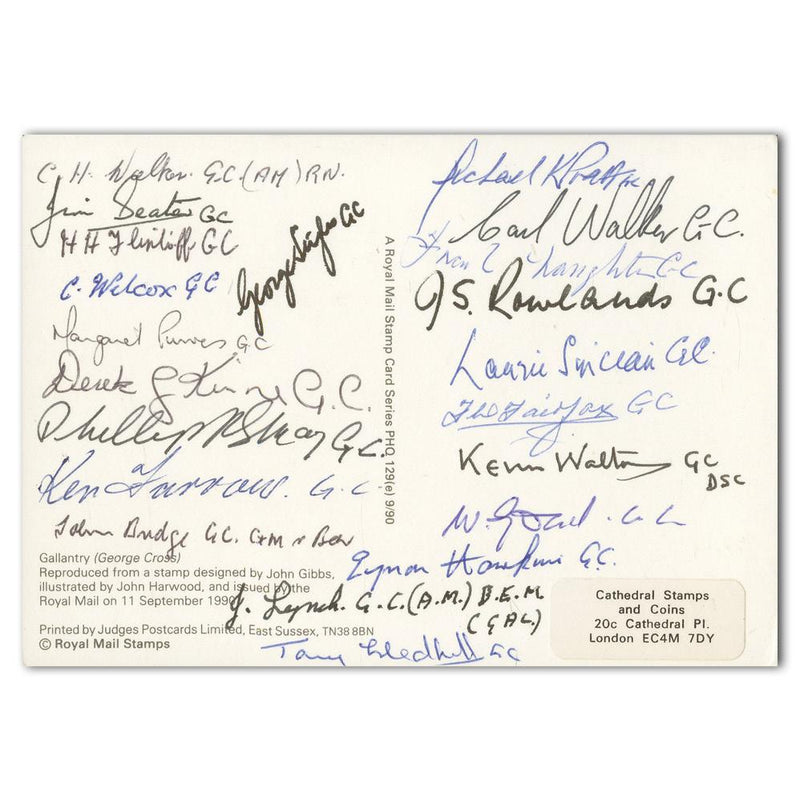 C. H. Walker. G.C. (AM) RN.
Jim Beaton GC
H H Flintoff GC
C. Wilcox GC
George GC
Margaret Purves GC
Derek G Kinne G.C.
Phillip R May G.C.
Ken Farrow. G.C
John Bridge GC. GM & Bar
Gallantry (George Cross)
Reproduced from a stamp designed by John Gibbs,
illustrated by John Harwood, and issued by the
Royal Mail on 11 September 1990
Printed by Judges Postcards Limited, East Sussex, TN38 8BN
© Royal Mail Stamps
A Royal Mail Stamp Card Series PHQ 129(e) 9/90
Michael K Pratt GC
Carl Walker G.C.
Naughton GC
J S. Rowlands G.C
Laurie Sinclair GC.
Fairfax GC
Kevin Walton GC
DSC
W. G.C.
Eynon Hawkins G.C.
J. Lynch. G.C. (A.M.) B.E.M
(CGAL)
Tony Gledhill GC
Cathedral Stamps
and Coins
20c Cathedral Pl.
London EC4M 7DY